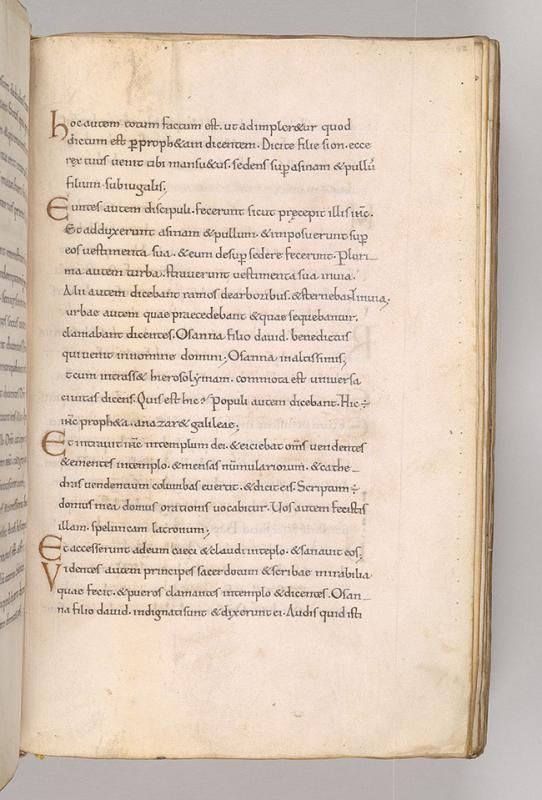 hoc autem totum factum est. ut adimpler&ur quod
dictum est p̱ proph&am dicentem. Dicite filie sion. ecce
rex tuus uenit tibi mansu&us. sedens sup̱ asinam & pullū
filium subiugalis;
Euntes autem discipuli. fecerunt sicut pręcepit illis ihc̄.
Et adduxerunt asinam & pullum. & imposuerunt sup̱
eos uestimenta sua. & eum desup̱ sedere fecerunt. Pluri-
ma autem turba. strauerunt uestimenta sua inuia.
Alii autem dicebant ramos dearboribus. & sternebant inuia;
urbae autem quae praecedebant & quae sequebantur.
clamabant dicentes. Osanna filio dauid. benedictus
qui uenit innomine domini; Osanna inaltissimis;
tcum intrass& hierosolymam. commota est uniuersa
ciuitas dicens. Quis est hic? Populi autem dicebant. Hic ÷
ihc̄ proph&a. anazar&galileae;
Et intrauit ihc̄ intemplum dei. & eiciebat om̄s uendentes
& ementes intemplo. & mensas nūmulariorum. & cathe-
dras uendentium columbas euertit. & dicit eis. Scriptum ÷
domus mea domus orationis uocabitur. Uos autem fecistis
illam. speluncam latronum;
Et accesserunt adeum caeci & claudi inteplo. & sanauit eos;
Videntes autem principes sacerdotum & scribae mirabilia
quae fecit. & pueros clamantes intemplo & dicentes. Osan-
na filio dauid. indignati sunt & dixerunt ei. Audis quid isti